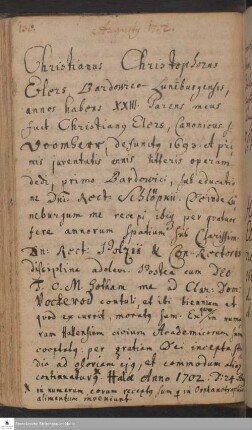 Christianus Christophorus
Elers, Bardovico Lunæburgensis,
annos habens XXIII. Parens meus
fuit Christianus Elers, Canonicus &
defunctus 1693. et pri-
mis juventutis annis litteris operam
dedi, primo Bardovici, sub educatio-
ne Dni. Rect: Schlöpkii. Deinde
neburgum me recepi ibiq per quatuor
fere annorum spatium sub Clarissim.
Dn: Rect: & Con-Rectoris
disciplina adolevi. Postea cum DEO
Gotham me ad Clar: Dom:
Vockerod contuli, et ibi triennium et
quod excurrit, moratus sum. in nume-
rum Hallensium civium Academicorum sum
cooptatus, per gratiam Dei incepta stu-
dia ad gloriam ejus, et commodum
continuaturus. Halæ Anno 1702. D. 24
in numerum eorum receptus sum qui in Orphanotropheo
alimentum inveniunt.